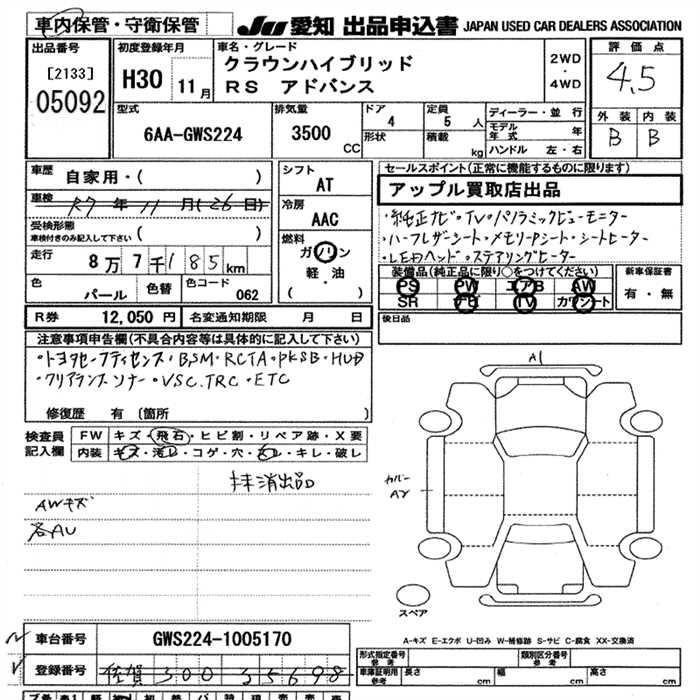 車内保管・守衛保管
JU 愛知 出品申込書 JAPAN USED CAR DEALERS ASSOCIATION
出品番号
[2133]
05092
初度登録年月
H30 11月
車名・グレード
クラウンハイブリッド
RS アドバンス
2WD
・
4WD
評価点
4.5
外装 内装
B B
型式
6AA-GWS224
排気量
3500 CC
ドア
4
形状
定員
5 人
積載 kg
ディーラー・並行
モデル年式 年
ハンドル 左・右
車歴
自家用・( )
車検 R7 年 11 月(26日)
受検形態
車検付きのみ記入して下さい ( )
走行 8万7千185km
色 パール
色替
色コード 062
シフト
AT
冷房
AAC
燃料
ガソリン
軽・油
( )
セールスポイント(正常に機能するものに限ります)
アップル買取店出品
・純正ナビ・TV・パノラミックビューモニター
・ハーフレザーシート・メモリーPシート・シートヒーター
・LEDヘッド・ステアリングヒーター
装備品(純正品に限り○をつけてください)
PS PW エアB AW
SR ナビ TV カワシート
新車保証書
有・無
後日品
R券 12,050円 名変通知期限 月 日
注意事項申告欄(不具合内容等は具体的に記入して下さい)
・トヨタセーフティセンス・BSM・RCTA・PKSB・HUD
・クリアランスソナー・VSC.TRC・ETC
修復歴 有 (箇所 )
検査員記入欄
FW キズ・飛石・ヒビ割・リペア跡・X要
内装 キズ・汚レ・コゲ・穴・スレ・キレ・破レ
抹消出品
AWキズ
各AU
A1
カバー
A2
スペア
A-キズ E-エクボ U-凹み W-補修跡 S-サビ C-腐食 XX-交換済
車台番号 GWS224-1005170
登録番号 佐賀 300 す 5698
形式指定番号
参考
類別区分番号
参考
車庫証明用
参考
長さ cm 幅 cm 高さ cm